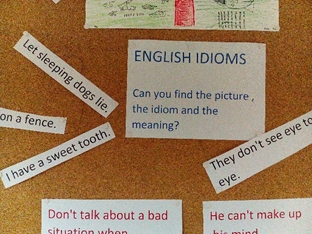 Let sleeping dogs lie.
ENGLISH IDIOMS
Can you find the picture ,
the idiom and the
meaning?
on a fence.
I have a sweet tooth.
They don't see eye to
eye.
Don't talk about a bad
situation when
He can't make up
his mind